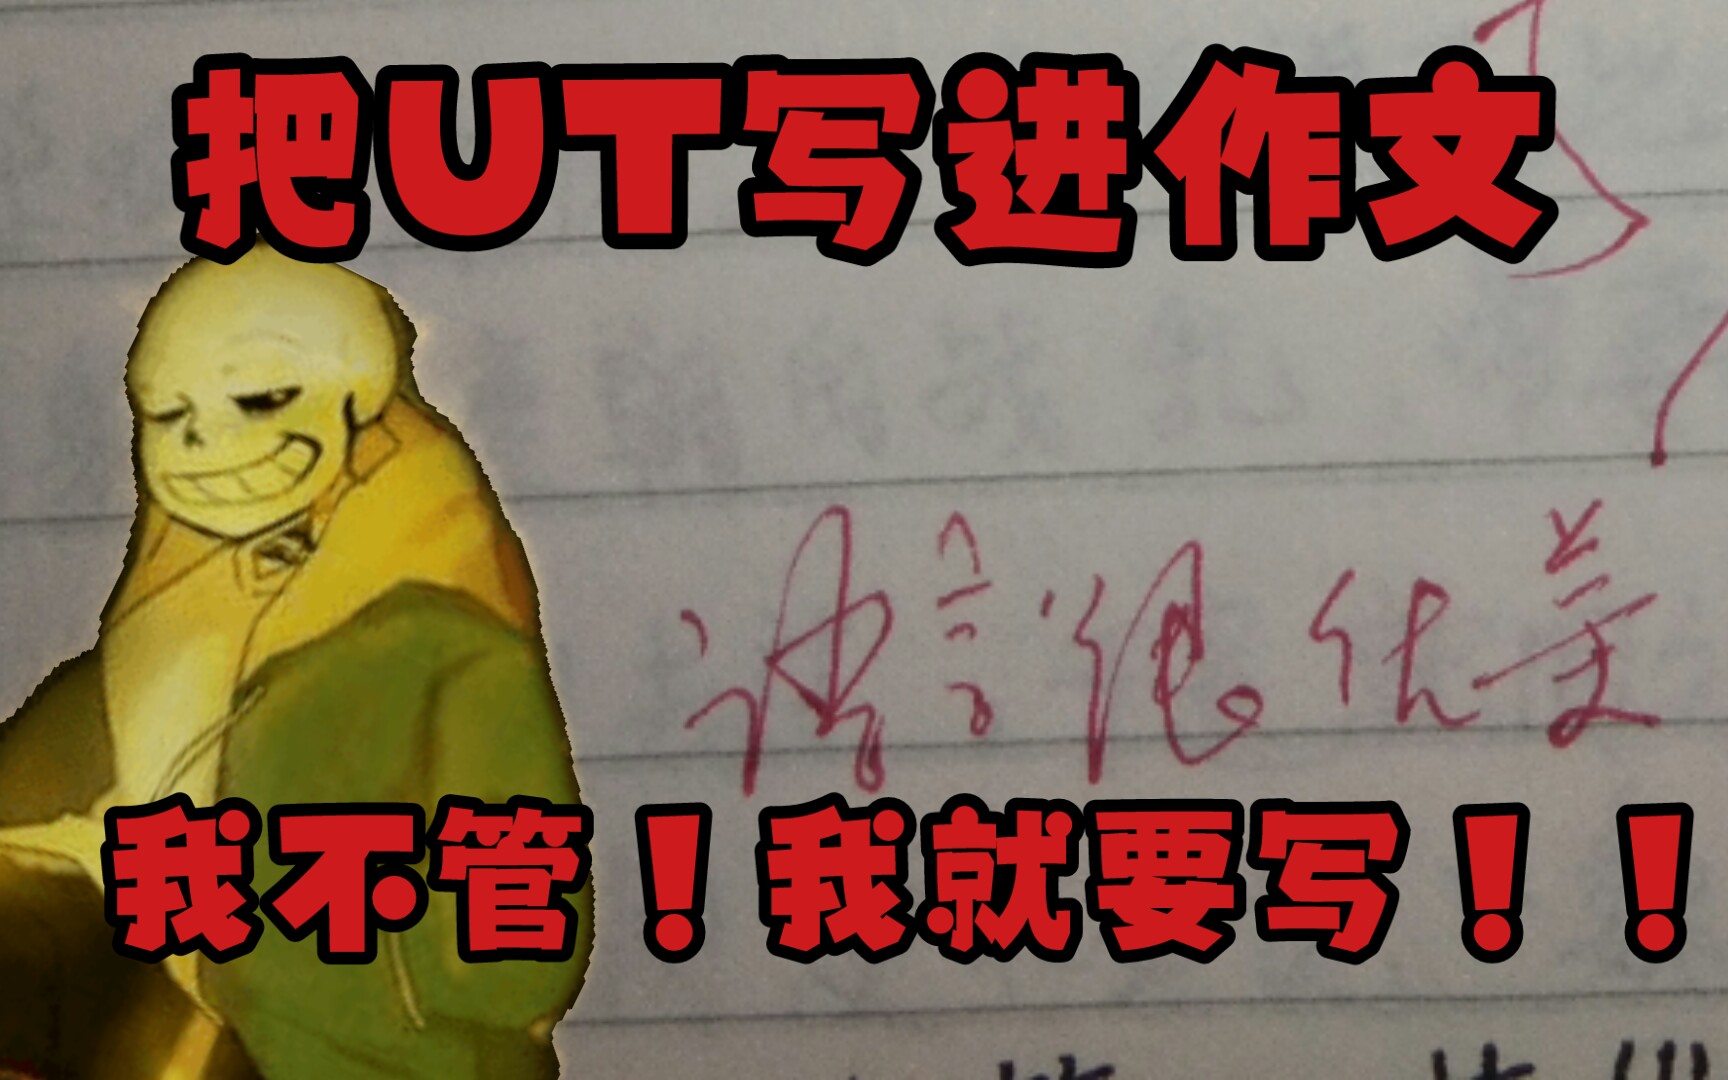 把UT写进作文
语言很优美
我不管！我就要写！！